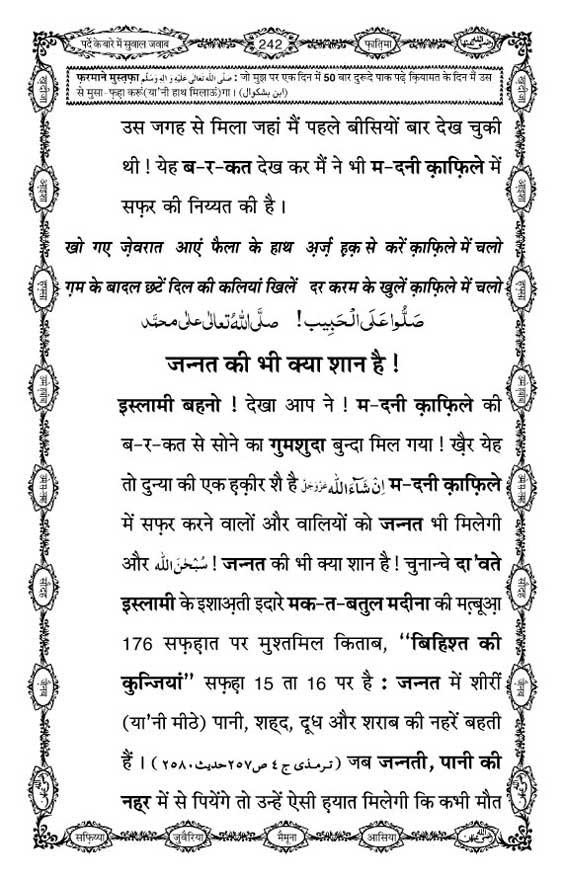 पर्दे के बारे में सुवाल जवाब
242
फ़ातिमा
फ़रमाने मुस्तफ़ा صلى الله تعالى عليه واله وسلم : जो मुझ पर एक दिन में 50 बार दुरूदे पाक पढ़े क़ियामत के दिन मैं उस
से मुसा-फ़हा करूं(या'नी हाथ मिलाऊं)गा। (ابن بشكوال)
उस जगह से मिला जहां मैं पहले बीसियों बार देख चुकी
थी ! येह ब-र-कत देख कर मैं ने भी म-दनी क़ाफ़िले में
सफ़र की निय्यत की है।
खो गए ज़ेवरात आएं फैला के हाथ अर्ज़ ह़क़ से करें क़ाफ़िले में चलो
ग़म के बादल छटें दिल की कलियां खिलें दर करम के खुलें क़ाफ़िले में चलो
صَلُّوا عَلَى الْحَبِيب! صلَّى اللهُ تعالى على محمَّد
जन्नत की भी क्या शान है !
इस्लामी बहनो ! देखा आप ने ! म-दनी क़ाफ़िले की
ब-र-कत से सोने का गुमशुदा बुन्दा मिल गया ! ख़ैर येह
तो दुन्या की एक ह़क़ीर शै है اِنْ شَآءَ اللّٰه عَزَّوَجَلَّ म-दनी क़ाफ़िले
में सफ़र करने वालों और वालियों को जन्नत भी मिलेगी
और سُبْحٰنَ اللّٰه ! जन्नत की भी क्या शान है ! चुनान्चे दा'वते
इस्लामी के इशाअ़ती इदारे मक-त-बतुल मदीना की मत़्बूआ़
176 सफ़ह़ात पर मुश्तमिल किताब, “बिहिश्त की
कुन्जियां” सफ़ह़ा 15 ता 16 पर है : जन्नत में शीरीं
(या'नी मीठे) पानी, शह्द, दूध और शराब की नहरें बहती
हैं। (ترمذی ج ٤ ص ٢٥٧ حدیث ٢٥٨٠) जब जन्नती, पानी की
नह्र में से पियेंगे तो उन्हें ऐसी ह़यात मिलेगी कि कभी मौत
सफ़िय्या
जुवैरिया
मैमूना
आसिया